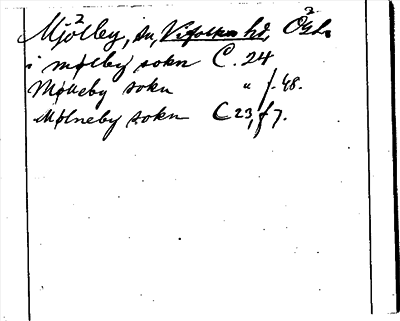 Mjölby, sn, Vifolka hd, Ögl.
i mølby sokn C. 24
Mølleby sokn " f. 48.
Mølneby sokn C 23, f 7.